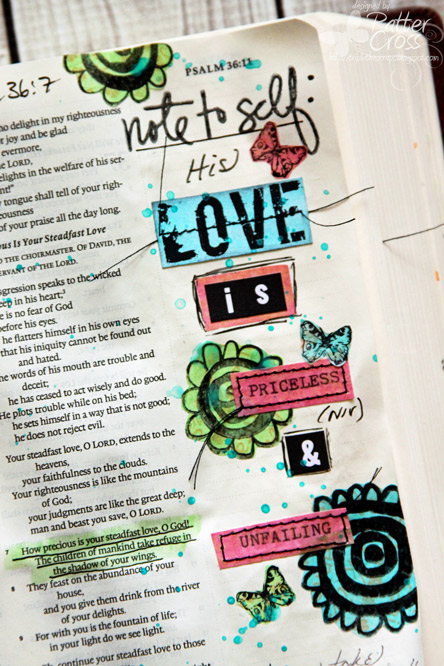 designed by:
Patter
Cross
36:7
PSALM 36:11
note to self:
His
LOVE
is
PRICELESS
(NIV)
&
UNFAILING
who delight in my righteousness
for joy and be glad
evermore,
the LORD,
delights in the welfare of his ser-
tongue shall tell of your righ-
teousness
of your praise all the day long.
Is Your Steadfast Love
TO THE CHOIRMASTER. OF DAVID, THE
SERVANT OF THE LORD.
speaks to the wicked
deep in his heart;
is no fear of God
before his eyes.
he flatters himself in his own eyes
that his iniquity cannot be found out
and hated.
The words of his mouth are trouble and
deceit;
he has ceased to act wisely and do good.
He plots trouble while on his bed;
he sets himself in a way that is not good;
he does not reject evil.
Your steadfast love, O LORD, extends to the
heavens,
your faithfulness to the clouds.
Your righteousness is like the mountains
of God;
your judgments are like the great deep;
man and beast you save, O LORD.
7 How precious is your steadfast love, O God!
The children of mankind take refuge in
the shadow of your wings.
8 They feast on the abundance of your
house,
and you give them drink from the river
of your delights.
9 For with you is the fountain of life;
in your light do we see light.
continue your steadfast love to those